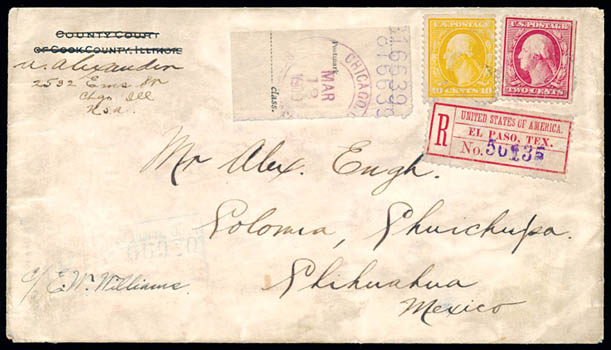 COUNTY COURT
OF COOK COUNTY, ILLINOIS
Alexander
2532
Chgo Ill
U.S.a.
Postmark.
class.
CHICAGO,
MAR
U.S. POSTAGE
10 CENTS 10
U.S. POSTAGE
TWO CENTS
R
UNITED STATES OF AMERICA.
EL PASO, TEX.
No. 50135
Mr Alex. Eugh.
Colonia, Chuichupa.
c/ E. W. Williams.
Chihuahua
Mexico